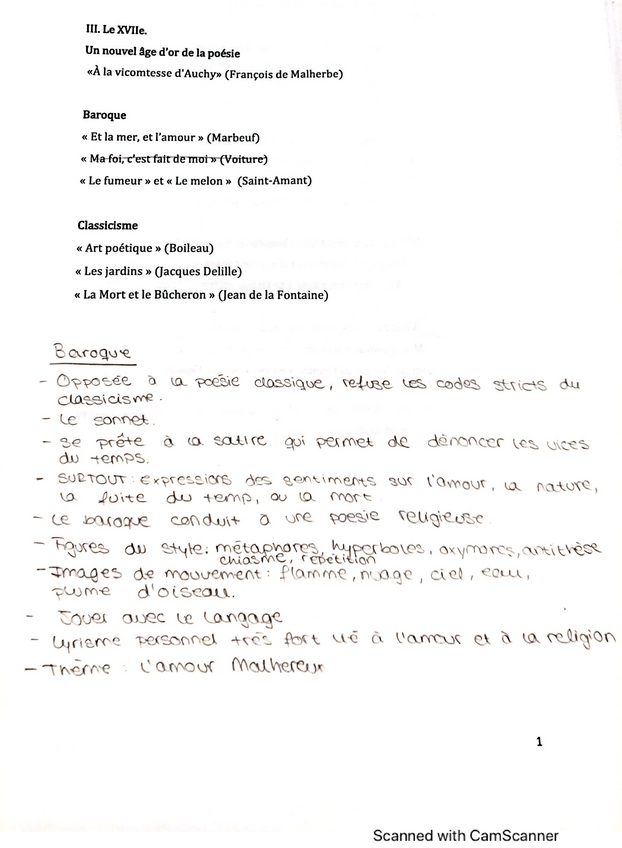 III. Le XVIIe.
Un nouvel âge d'or de la poésie
«À la vicomtesse d'Auchy» (François de Malherbe)
Baroque
« Et la mer, et l'amour » (Marbeuf)
« Ma foi, c'est fait de moi » (Voiture)
« Le fumeur » et « Le melon » (Saint-Amant)
Classicisme
« Art poétique » (Boileau)
« Les jardins » (Jacques Delille)
« La Mort et le Bûcheron » (Jean de la Fontaine)
Baroque
- Opposée à la poésie classique, refuse les codes stricts du
classicisme.
- Le sonnet.
- Se prête à la satire qui permet de dénoncer les vices
du temps.
- SURTOUT : expressions des sentiments sur l'amour, la nature,
la fuite du temp, ou la mort
- Le baroque conduit à une poesie religieuse.
- Figures du style: métaphores, hyperboles, oxymores, antithèse
chiasme, répétition
- Images de mouvement : flamme, nuage, ciel, eau,
plume d'oiseau.
- Jouer avec le langage
- Lyrisme personnel très fort lié à l'amour et à la religion
- Thème : L'amour Malhereux
1
Scanned with CamScanner